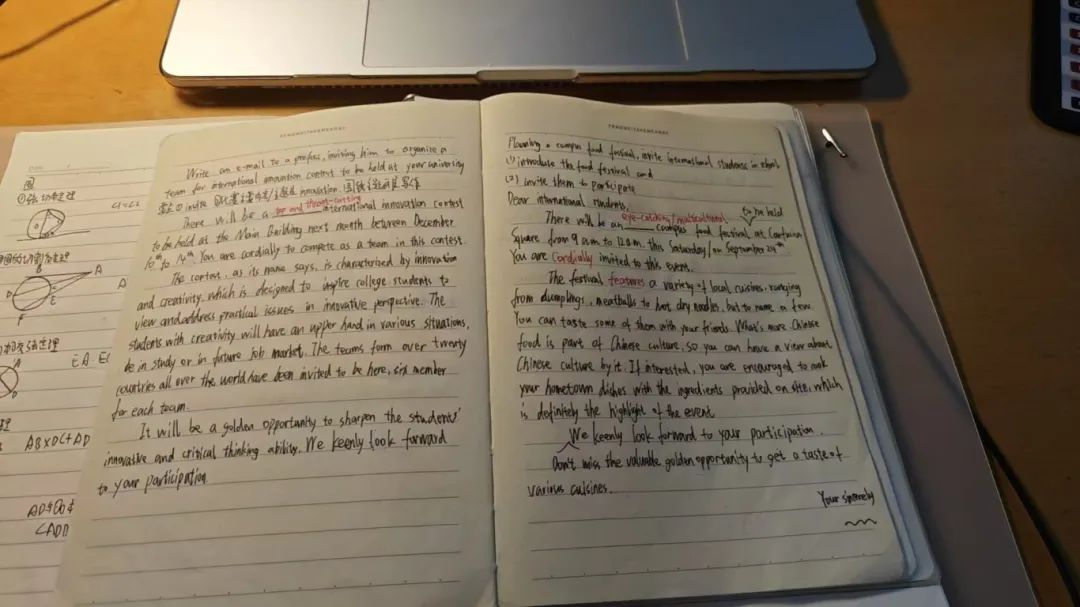 圆
A
D
E
F
A
D
EA
AB×DC+AD
Write an e-mail to a profess, inviting him to organize a
team for international innovation contest to be held at your university
top and throat-cutting
There will be a international innovation contest
to be held at the Main Building next month between December
10th to 14th You are cordially to compete as a team in this contest.
The contest, as its name says, is characterized by innovation
and creativity, which is designed to inspire college students to
view and address practical issues in innovative perspective. The
students with creativity will have an upper hand in various situations,
be in study or in future job market. The teams form over twenty
countries all over the world have been invited to be here, six member
for each team.
It will be a golden opportunity to sharpen the students'
innovative and critical thinking ability. We keenly look forward
to your participation.
Planning a campus food festival, invite international students in
(1) introduce the food festival and
(2) invite them to participate
Dear international students,
eye-catching/multicultural to be held
There will be an campus food festival at Confucian
Square from 9 a.m to 12 a.m. this Saturday/on September 29th
You are cordially invited to this event.
The festival features a variety of local cuisines, ranging
from dumplings, meatballs to hot dry noodles, but to name a few.
You can taste some of them with your friends. What's more, Chinese
food is part of Chinese culture, so you can have a view about
Chinese culture by it. If interested, you are encouraged to cook
your hometown dishes with the ingredients provided on site, which
is definitely the highlight of the event
We keenly look forward to your participation.
Don't miss the valuable golden opportunity to get a taste of
various cuisines.
Your sincerely